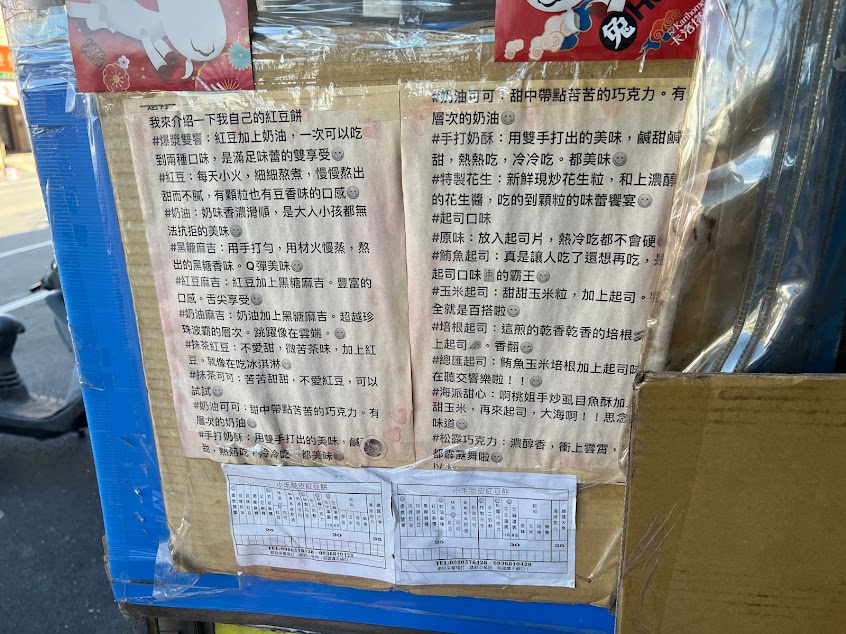 我來介紹一下我自己的紅豆餅
#爆漿雙響：紅豆加上奶油，一次可以吃
到兩種口味，是滿足味蕾的雙享受
#紅豆：每天小火，細細熬煮，慢慢熬出
甜而不膩，有顆粒也有豆香味的口感
#奶油：奶味香濃滑順，是大人小孩都無
法抗拒的美味
#黑糖麻吉：用手打勻，用材火慢蒸，熬
出的黑糖香味。Q彈美味
#紅豆麻吉：紅豆加上黑糖麻吉。豐富的
口感。舌尖享受
#奶油麻吉：奶油加上黑糖麻吉。超越珍
珠波霸的層次。跳躍像在雲端。
#抹茶紅豆：不愛甜，微苦茶味，加上紅
豆。就像在吃冰淇淋
#抹茶可可：苦苦甜甜，不愛紅豆，可以
試試
#奶油可可：甜中帶點苦苦的巧克力。有
層次的奶油
#手打奶酥：用雙手打出的美味，鹹
甜，熱熱吃，冷冷吃。都美味
#奶油可可：甜中帶點苦苦的巧克力。有
層次的奶油
#手打奶酥：用雙手打出的美味，鹹甜鹹
甜，熱熱吃，冷冷吃。都美味
#特製花生：新鮮現炒花生粒，和上濃醇
的花生醬，吃的到顆粒的味蕾饗宴
#起司口味
#原味：放入起司片，熱冷吃都不會硬
#鮪魚起司：真是讓人吃了還想再吃，是
起司口味的霸王
#玉米起司：甜甜玉米粒，加上起司。
全就是百搭啦
#培根起司：這煎的乾香乾香的培根
上起司。香翻
#總匯起司：鮪魚玉米培根加上起司
在聽交響樂啦！！
#海派甜心：啊桃姐手炒虱目魚酥加
甜玉米，再來起司，大海啊！！思念
味道
#松露巧克力：濃醇香，衝上雲霄，
都霹靂舞啦
小毛脆皮紅豆餅
25 30 35
小毛脆皮紅豆餅
25 30 35